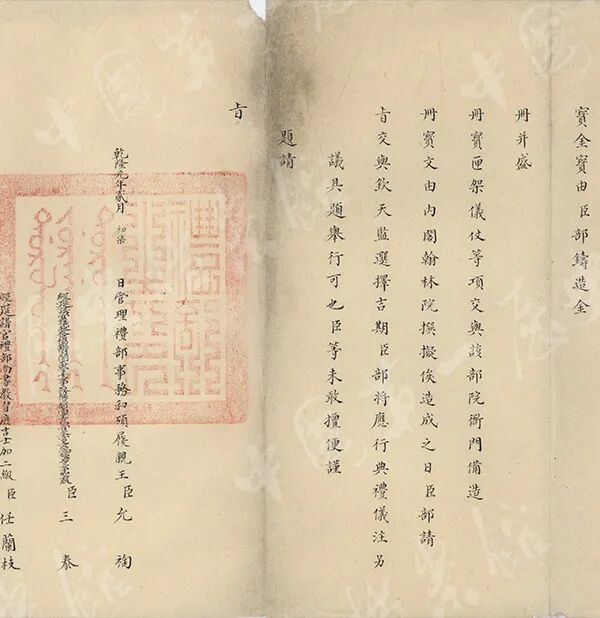 寳金寳由臣部鑄造金
冊并盛
冊寳匣架儀仗等項交與該部院衙門備造
冊寳文由内閣翰林院撰擬俟造成之日臣部請
旨交與欽天監選擇吉期臣部將應行典禮儀注另
議具題舉行可也臣等未敢擅便謹
題請
旨
乾隆元年貳月初柒日管理禮部事務和碩履親王臣允祹
臣三泰
經筵講官禮部尚書教習庶吉士加二級臣任蘭枝